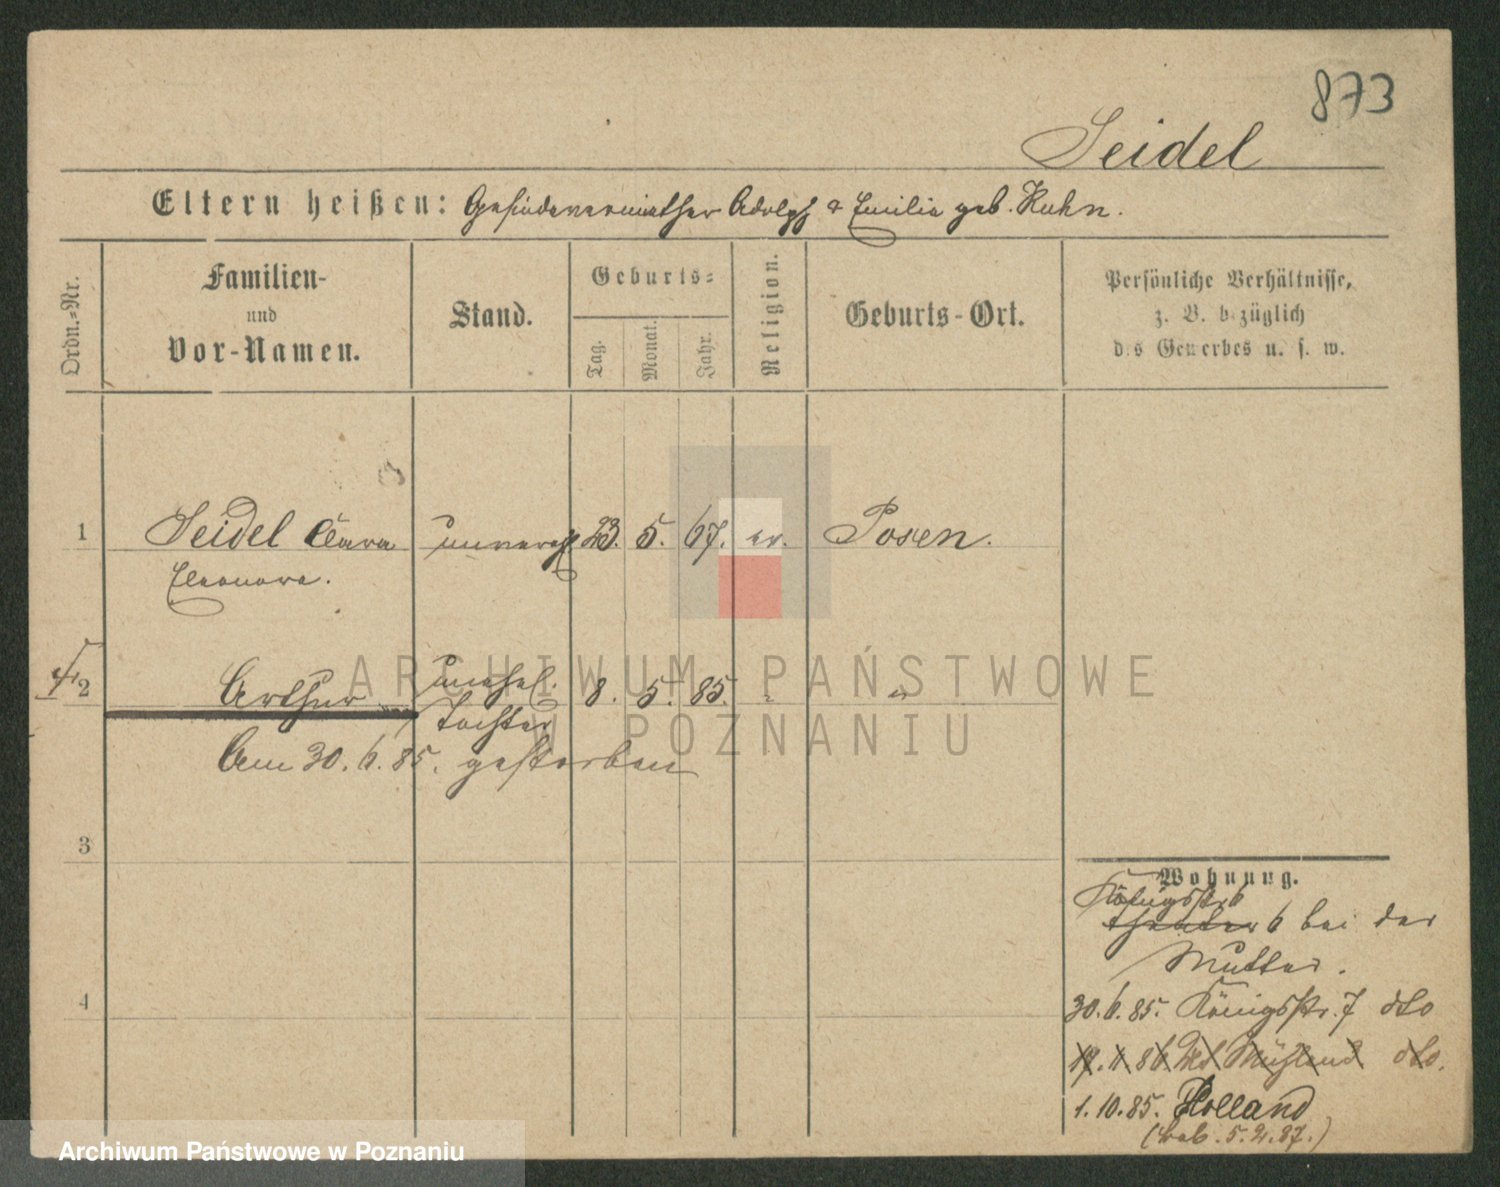 873
Seidel
Eltern heißen: Gesindevermiether Adolph & Emilie geb. Kuhn.
Ordn.=Nr.
Familien-
und
Vor-Namen.
Stand.
Geburts=
Tag.
Monat.
Jahr.
Religion.
Geburts-Ort.
Persönliche Verhältnisse,
z. B. bezüglich
des Gewerbes u. s. w.
1 Seidel Clara unvereh 23. 5. 67. ev. Posen.
Eleonore.
2 Arthur unehel. 8. 5. 85. " "
Tochter
Am 30. 6. 85. gestorben
3
4
Wohnung.
Königsstr 6
6 bei der
Mutter.
30. 6. 85. Königsstr. 7 dto
86. dto.
1. 10. 85. Holland
5. 2. 87.)
ARCHIWUM PAŃSTWOWE
W POZNANIU
Archiwum Państwowe w Poznaniu